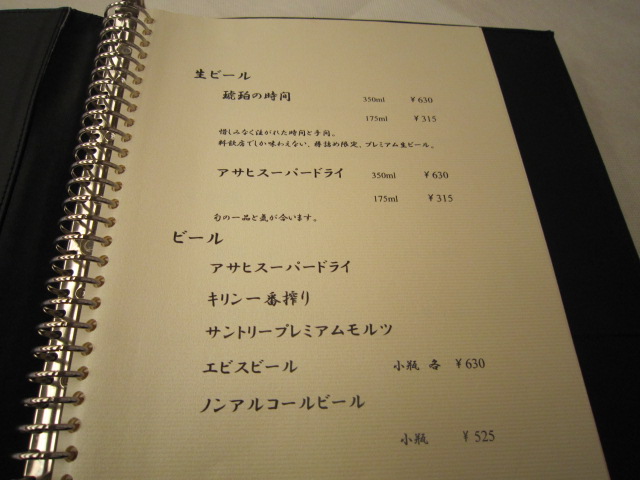 生ビール
琥珀の時間 350ml ¥630
175ml ¥315
惜しみなく注がれた時間と手間。
料飲店でしか味わえない、樽詰め限定、プレミアム生ビール。
アサヒスーパードライ 350ml ¥630
175ml ¥315
旬の一品と気が合います。
ビール
アサヒスーパードライ
キリン一番搾り
サントリープレミアムモルツ
エビスビール 小瓶 各 ¥630
ノンアルコールビール
小瓶 ¥525